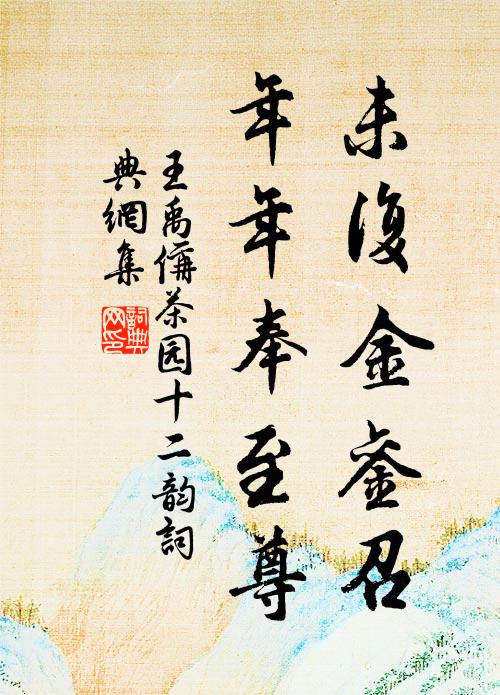 未復金銮召
年年奉至尊
王禹偁茶园十二韵詞
典網集
詞典网印